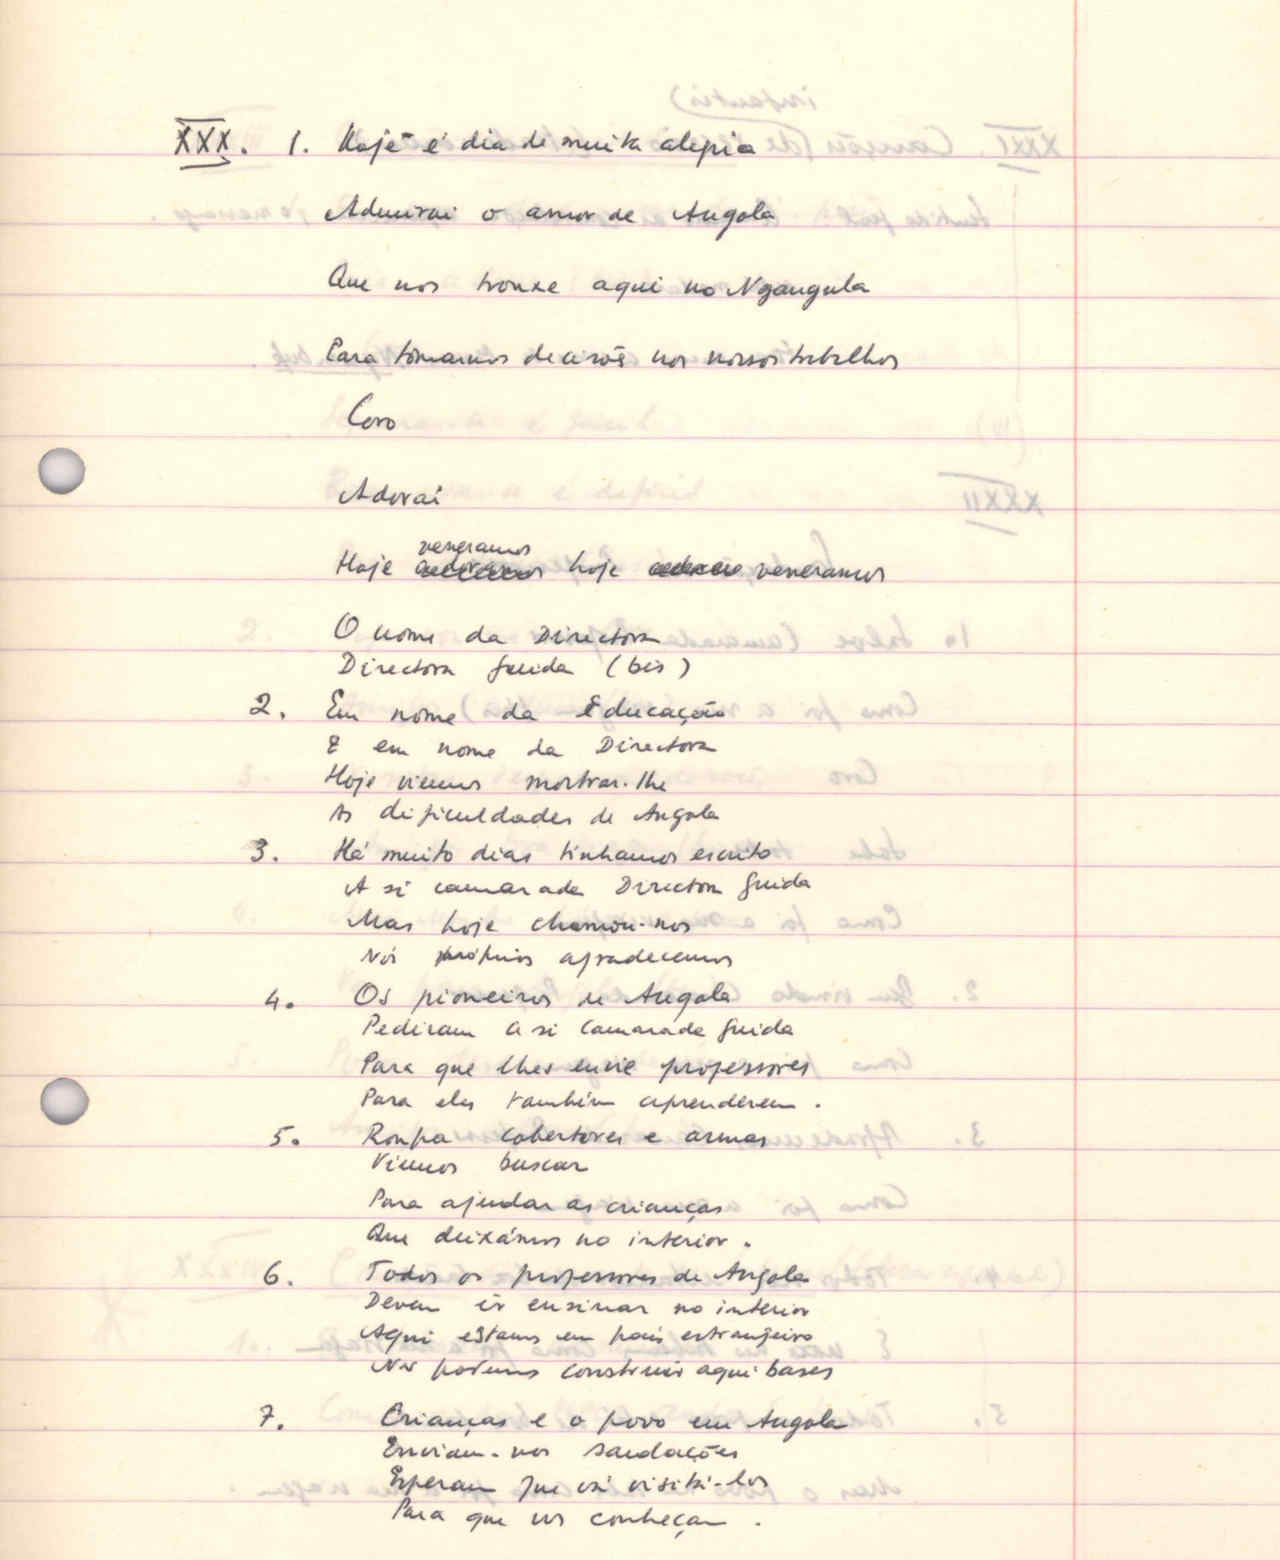 XXX. 1. Hoje é dia de muita alegria
Admirai o amor de Angola
Que nos trouxe aqui no Ngangula
Para tomarmos decisões nos nossos trabalhos
Coro
Adorai
veneramos
Hoje adoramos hoje veneramos
O nome da Directora
Directora Guida (bis)
2. Em nome da Educação
E em nome da Directora
Hoje viemos mostrar-lhe
As dificuldades de Angola
3. Há muito dias tínhamos escrito
A si camarada Directora Guida
Mas hoje chamou-nos
Nós próprios agradecemos
4. Os pioneiros de Angola
Pediram a si Camarada Guida
Para que lhes envie professores
Para eles também aprenderem.
5. Roupa cobertores e armas
Viemos buscar
Para ajudar as crianças
Que deixámos no interior.
6. Todos os professores de Angola
Devem ir ensinar no interior
Aqui estamos em país estrangeiro
Não podemos construir aqui bases
7. Crianças e o povo em Angola
Enviam-nos saudações
Esperam que vá visitá-los
Para que os conheçam.